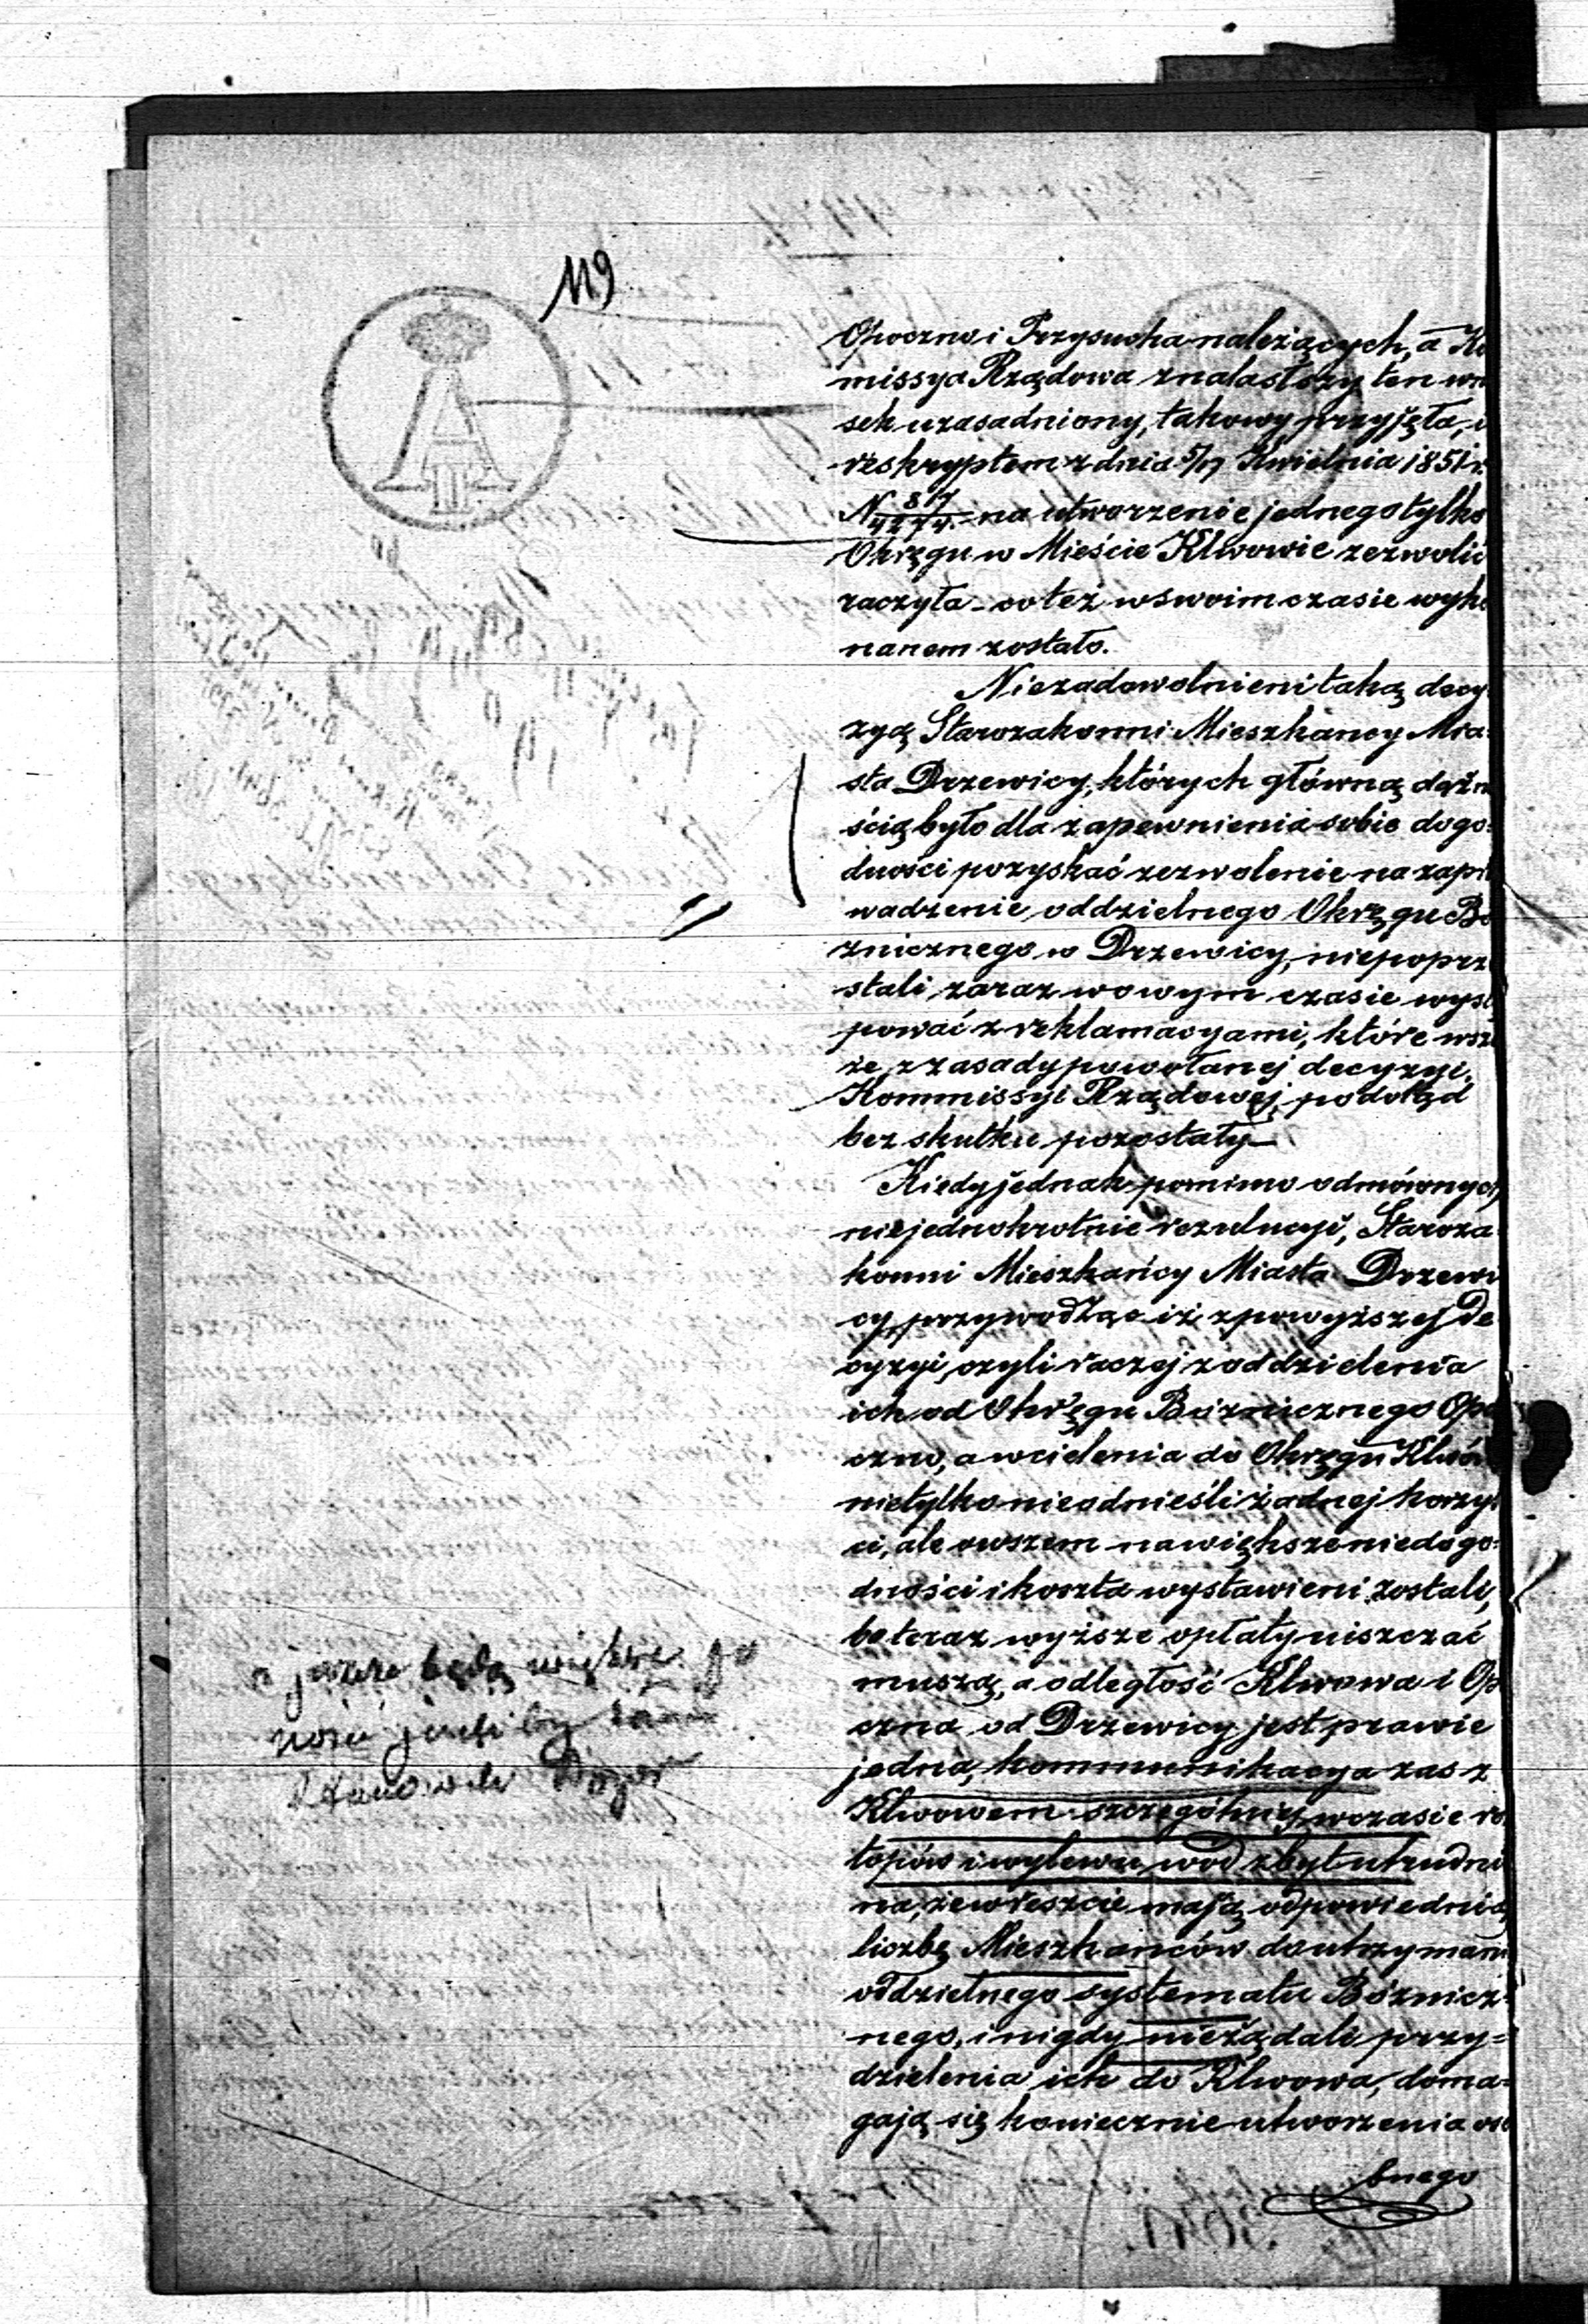 119
A
III
Opoczno i Przysucha należących, a Ko
missya Rządowa znalastszy ten wn
sek uzasadniony, takowy przyjęła, i
reskryptem z dnia 5/17 Kwietnia 1851 r.
N 817/4274. na utworzenie jednego tylko
Okręgu w Mieście Klwowie zezwolić
raczyła – co też w swoim czasie wyko
nanem zostało.
Niezadowolnieni taką decy
zyą Starozakonni Mieszkańcy Mia
sta Drzewicy, których główną dążn
ścią było dla zapewnienia sobie dogo
dności pozyskać zezwolenie na zapro
wadzenie oddzielnego Okręgu Bó
żnicznego w Drzewicy, niepoprze
stali zaraz wowym czasie wystę
pować z reklamacyami, które wsz
że z zasady powołanej decyzyi
Kommissyi Rządowej, podokąd
bez skutku pozostały –
Kiedy jednak pomimo odmównych
niejednokrotnie rezulucyi, Staroza
konni Mieszkańcy Miasta Drzewi
cy, przywodząc iż z powyższej De
cyzyi, czyli raczej z oddzielenia
ich od Okręgu Bóżnicznego Opo
czno, a wcielenia do Okręgu Klwów
nietylko nieodnieśli żadnej korzyś
ci, ale owszem na większe niedogo
dności i koszta wystawieni zostali,
bo teraz wyższe opłaty uiszczać
muszą, a odległość Klwowa i Opo
czna od Drzewicy jest prawie
jedna, kommunikacya zas z
Klwowem szczególniej w czasie ro
topów i wylewu wod zbyt utrudnio
na, że wreszcie mają odpowiednią
liczbę Mieszkańców do utrzymani
oddzielnego systematu Bóżnicz
nego, i nigdy nieżądali przy=
dzielenia ich do Klwowa, doma=
gają się koniecznie utworzenia oso
bnego
będą większe